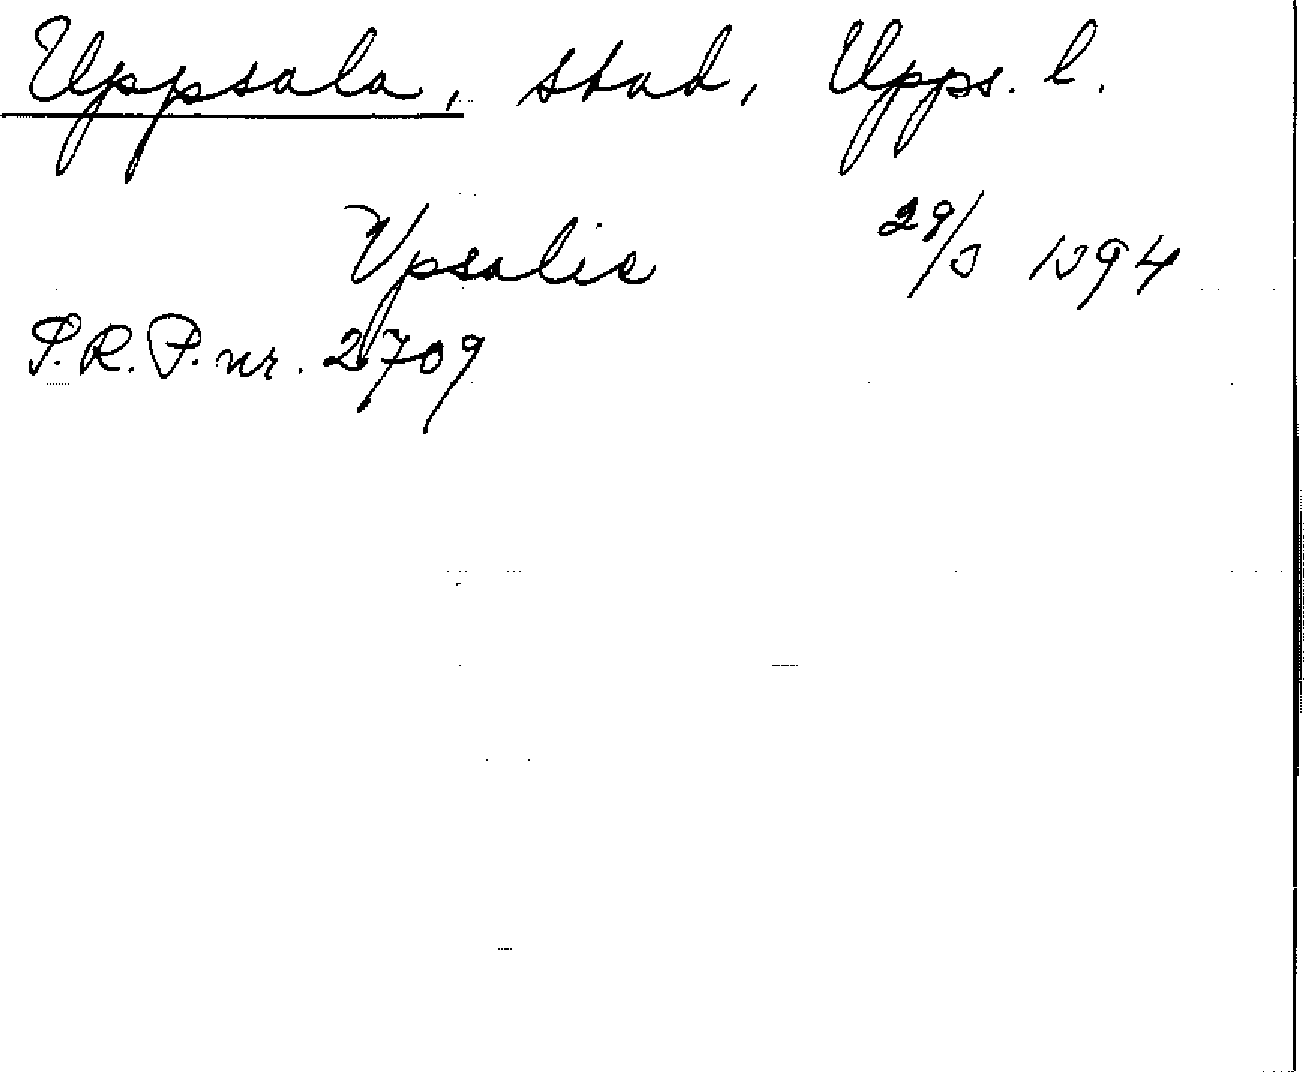 Uppsala, stad, Upps. l.
Vpsalie 29/3 1394
S.R.P. nr. 2709